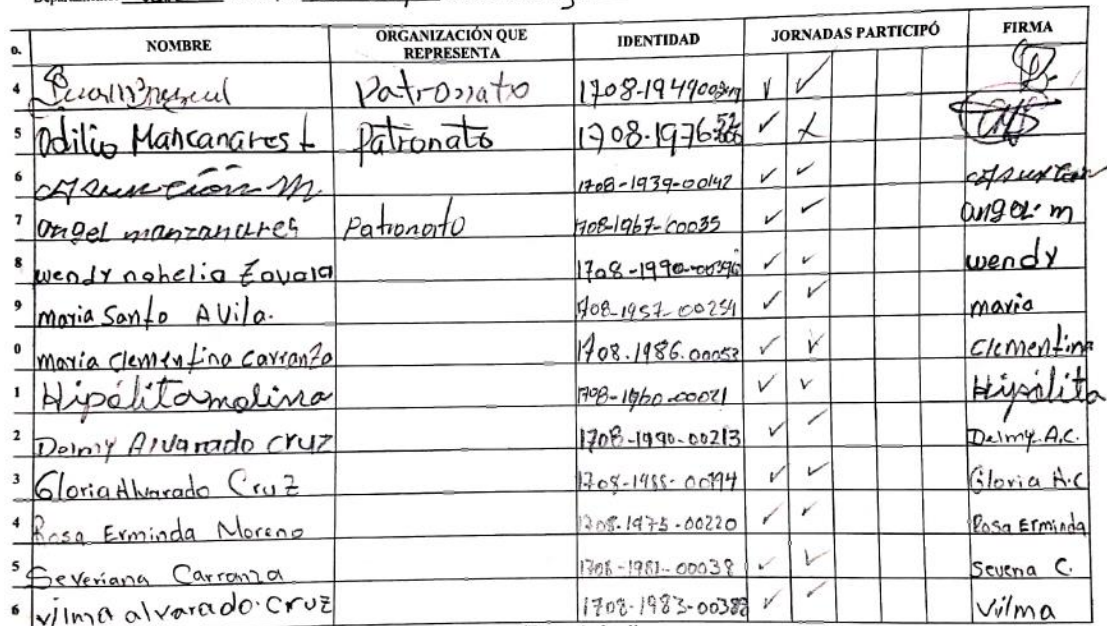 o. NOMBRE ORGANIZACIÓN QUE REPRESENTA IDENTIDAD JORNADAS PARTICIPÓ FIRMA
4 Patronato ✓ ✓
5 Odilio Mancanares L Patronato 1708-1976 ✓ ✓
6 Asuncion M. 1708-1939-00142 ✓ ✓ Asuncion
7 angel manzanares Patronato 1708-1967-00035 ✓ ✓ angel m
8 wendy nohelia Zavala 1708-1990-00390 ✓ ✓ wendy
9 maria Santo Avila. 1708-1957-00254 ✓ ✓ maria
0 maria clementina carranza 1708.1986.00052 ✓ ✓ clementina
1 Hipólita molina 1708-1960-00021 ✓ ✓ Hipólita
2 Delmy Alvarado cruz 1708-1990-00213 ✓ ✓ Delmy A.C.
3 Gloria Alvarado Cruz ✓ ✓ Gloria A.C
4 Rosa Erminda Moreno 1708-1975-00220 ✓ ✓ Rosa Erminda
5 Severiana Carranza 1708-1981-00038 ✓ ✓ Severa C.
6 vilma alvarado cruz 1708-1983-00388 ✓ ✓ Vilma